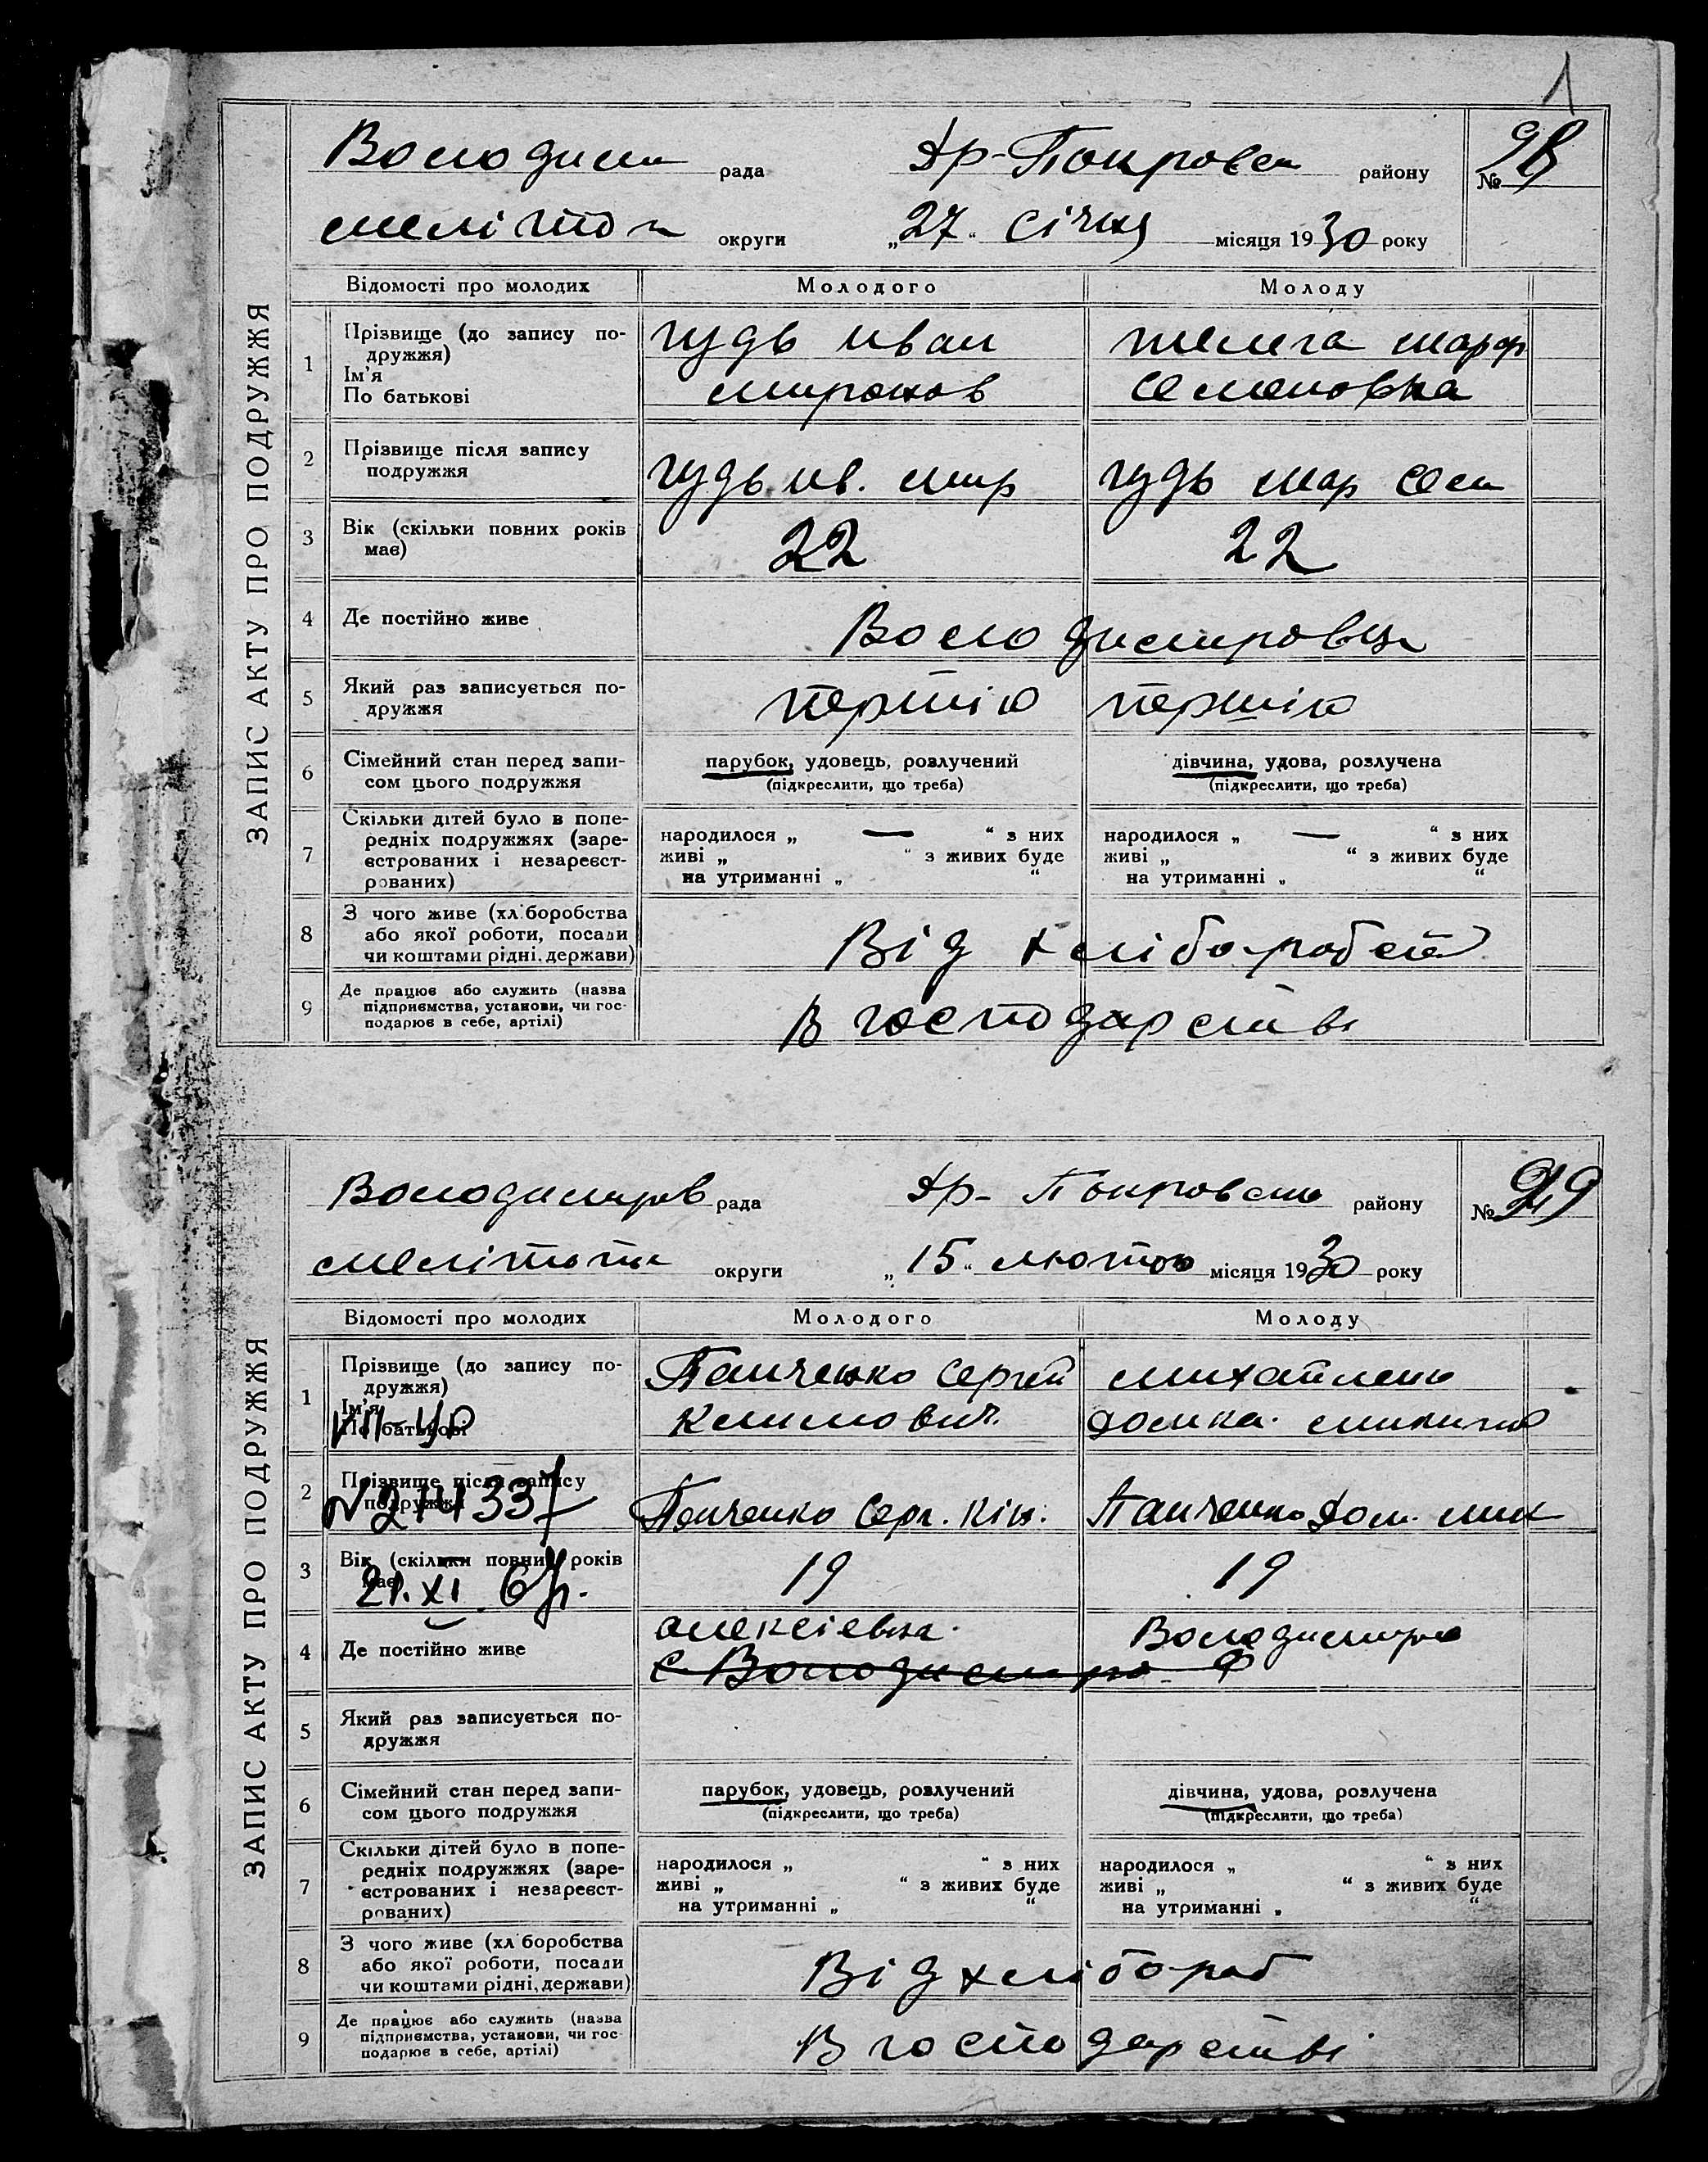 1
Володим рада Др-Покровск району № 28
меліто п округи „27“ січня місяця 1930 року
ЗАПИС АКТУ ПРО ПОДРУЖЖЯ
Відомості про молодих Молодого Молоду
1 Прізвище (до запису по-
дружжя)
Ім'я
По батькові
гудь иван
миронов
телега марф
Семеновка
2 Прізвище після запису
подружжя
гудь ив. мир гудь мар Сем
3 Вік (скільки повних років
має)
22 22
4 Де постійно живе Володимировци
5 Який раз записується по-
дружжя
першій першій
6 Сімейний стан перед запи-
сом цього подружжя
парубок, удовець, розлучений
(підкреслити, що треба)
дівчина, удова, розлучена
(підкреслити, що треба)
7 Скільки дітей було в попе-
редніх подружжях (заре-
єстрованих і незареєст-
рованих)
народилося „ — “ з них
живі „ “ з живих буде
на утриманні „ “
народилося „ — “ з них
живі „ “ з живих буде
на утриманні „ “
8 З чого живе (хліборобства
або якої роботи, посади
чи коштами рідні, держави)
Від хліборобст
9 Де працює або служить (назва
підприємства, установи, чи гос-
подарює в себе, артілі)
В господарстві
Володимиров рада Др- Покровск району № 29
округи „15“ лютого місяця 1930 року
ЗАПИС АКТУ ПРО ПОДРУЖЖЯ
Відомості про молодих Молодого Молоду
1 Прізвище (до запису по-
дружжя)
Ім'я
По батькові
Панченко Сергей
Климович
михайленко
домка
2 Прізвище після запису
подружжя
N 214337
Панченко Серг. Кли. Панченко Дом. мик
3 Вік (скільки повних років
має)
21. XI 67р.
19 19
4 Де постійно живе
алексіевка
с Володимиро
Володимиро
5 Який раз записується по-
дружжя
6 Сімейний стан перед запи-
сом цього подружжя
парубок, удовець, розлучений
(підкреслити, що треба)
дівчина, удова, розлучена
(підкреслити, що треба)
7 Скільки дітей було в попе-
редніх подружжях (заре-
єстрованих і незареєст-
рованих)
народилося „ “ з них
живі „ “ з живих буде
на утриманні „ “
народилося „ “ з них
живі „ “ з живих буде
на утриманні „ “
8 З чого живе (хліборобства
або якої роботи, посади
чи коштами рідні, держави)
Від хлібороб
9 Де працює або служить (назва
підприємства, установи, чи гос-
подарює в себе, артілі)
В господарстві